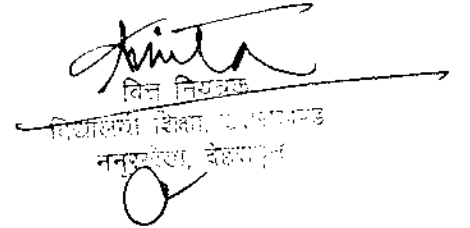 Amita
वित्त नियंत्रक
विद्यालयी शिक्षा, उत्तराखण्ड
ननूरखेड़ा, देहरादून